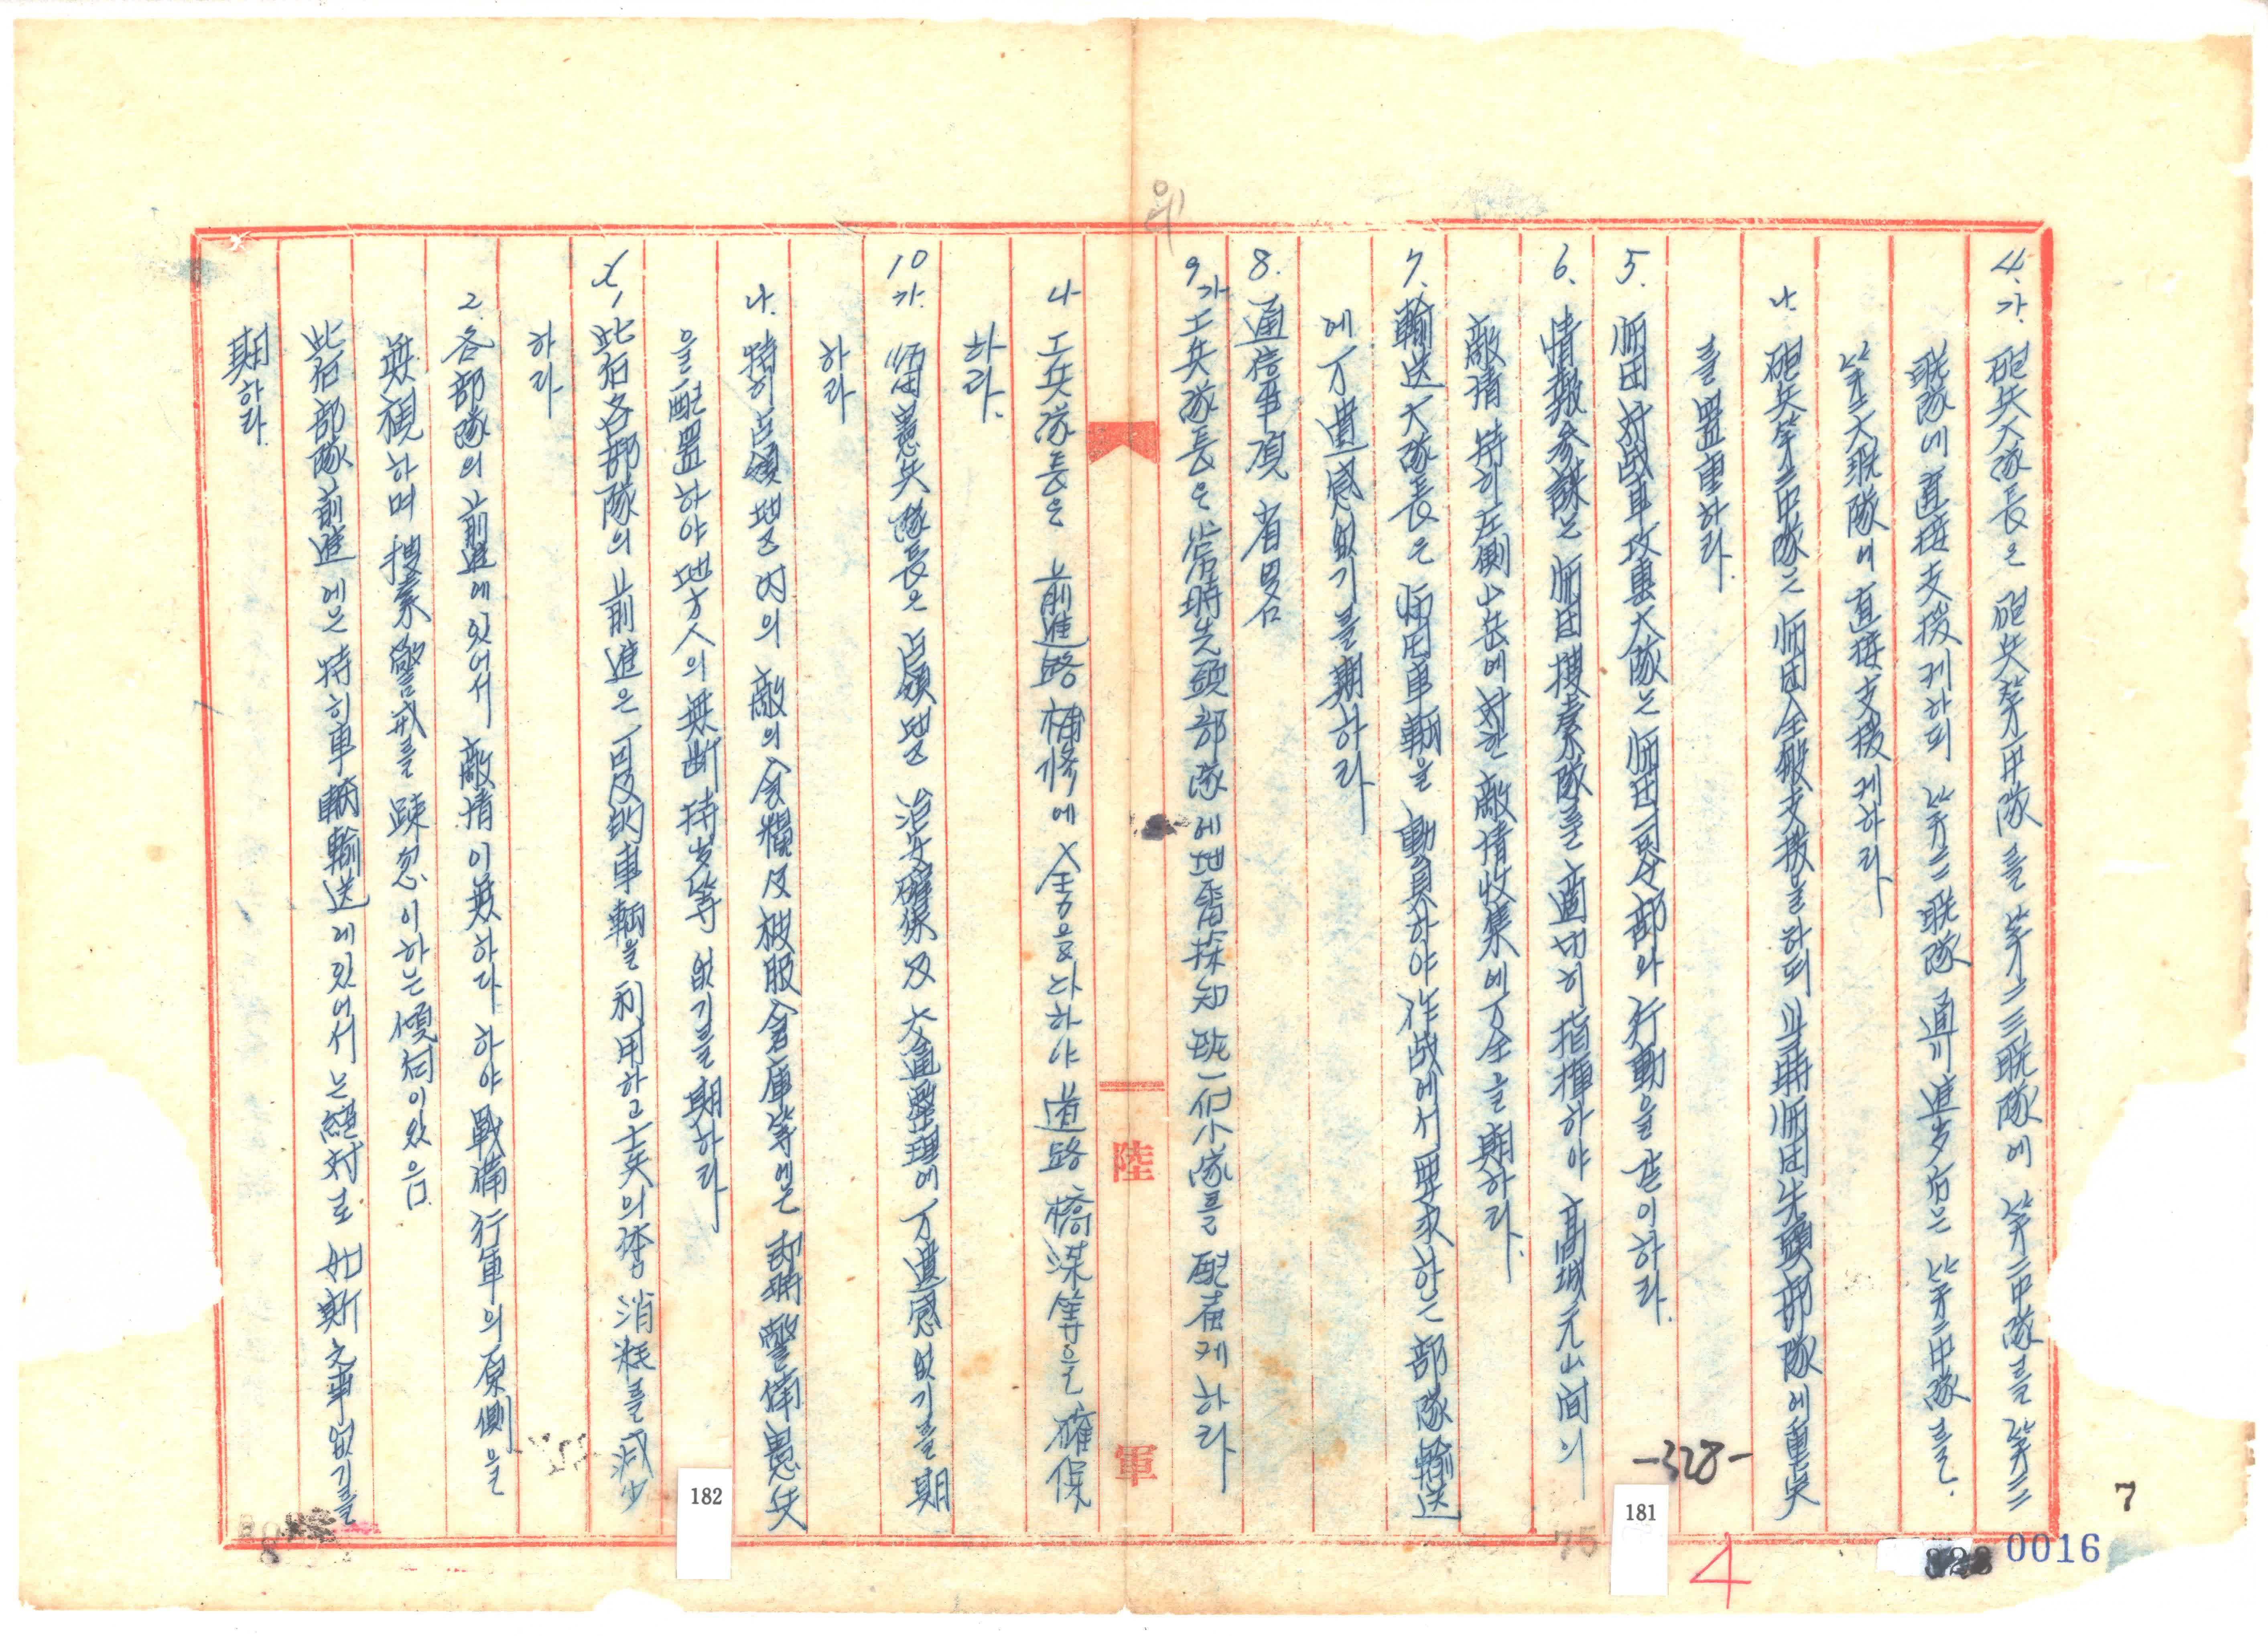 4. 가. 砲兵大隊長은 砲兵第一中隊를 第二三聯隊에 第二中隊를 第二
聯隊에 直接支援케하되 第二聯隊 通川進出后는 第二中隊를
第二大聯隊에 直接支援케하라
나. 砲兵第三中隊는 師団全般支援을하되 当時師団先頭部隊에重点
를置重하라.
5. 師団対战車攻擊大隊는 師団司令部와 行動을같이하라.
6. 情報参謀는 師団搜索隊를 適切히指揮하야 高城元山间의
敵情 特히左側山岳에対한 敵情收集에万全을期하라.
7. 輸送大隊長은 師団車輛을 動員하야 作战에서 要求하는 部隊輸送
에 万遺憾없기를期하라
8. 通信事項 省畧
9. 가 工兵隊長은 当時先頭部隊에地雷探知班一個小隊를 配屬케하라
나 工兵隊長은 前進路補修에 全力을다하야 道路橋梁等을確保
하라.
10 가. 師団憲兵隊長은 占領地区 治安確保及 交通整理에 万遺憾없기를期
하라
나. 特히占領地区内의 敵의食糧及被服倉庫等에는 即時警備憲兵
을配置하야 地方人의無断持出等없기를期하라
X, 此后各部隊의 前進은 可及的車輛을利用하고 士兵의 体力消耗를减少
하라
2. 各部隊의 前進에있어서 敵情이無하다 하야 戰備行軍의原側을
無視하며 搜索警戒를 疎忽이하는傾向이있음.
此后部隊前進에는 特히車輛輸送에있어서는絕対로 如斯之事없기를
期하라.
陸
軍
-328-
181
182
75
4
7
0016